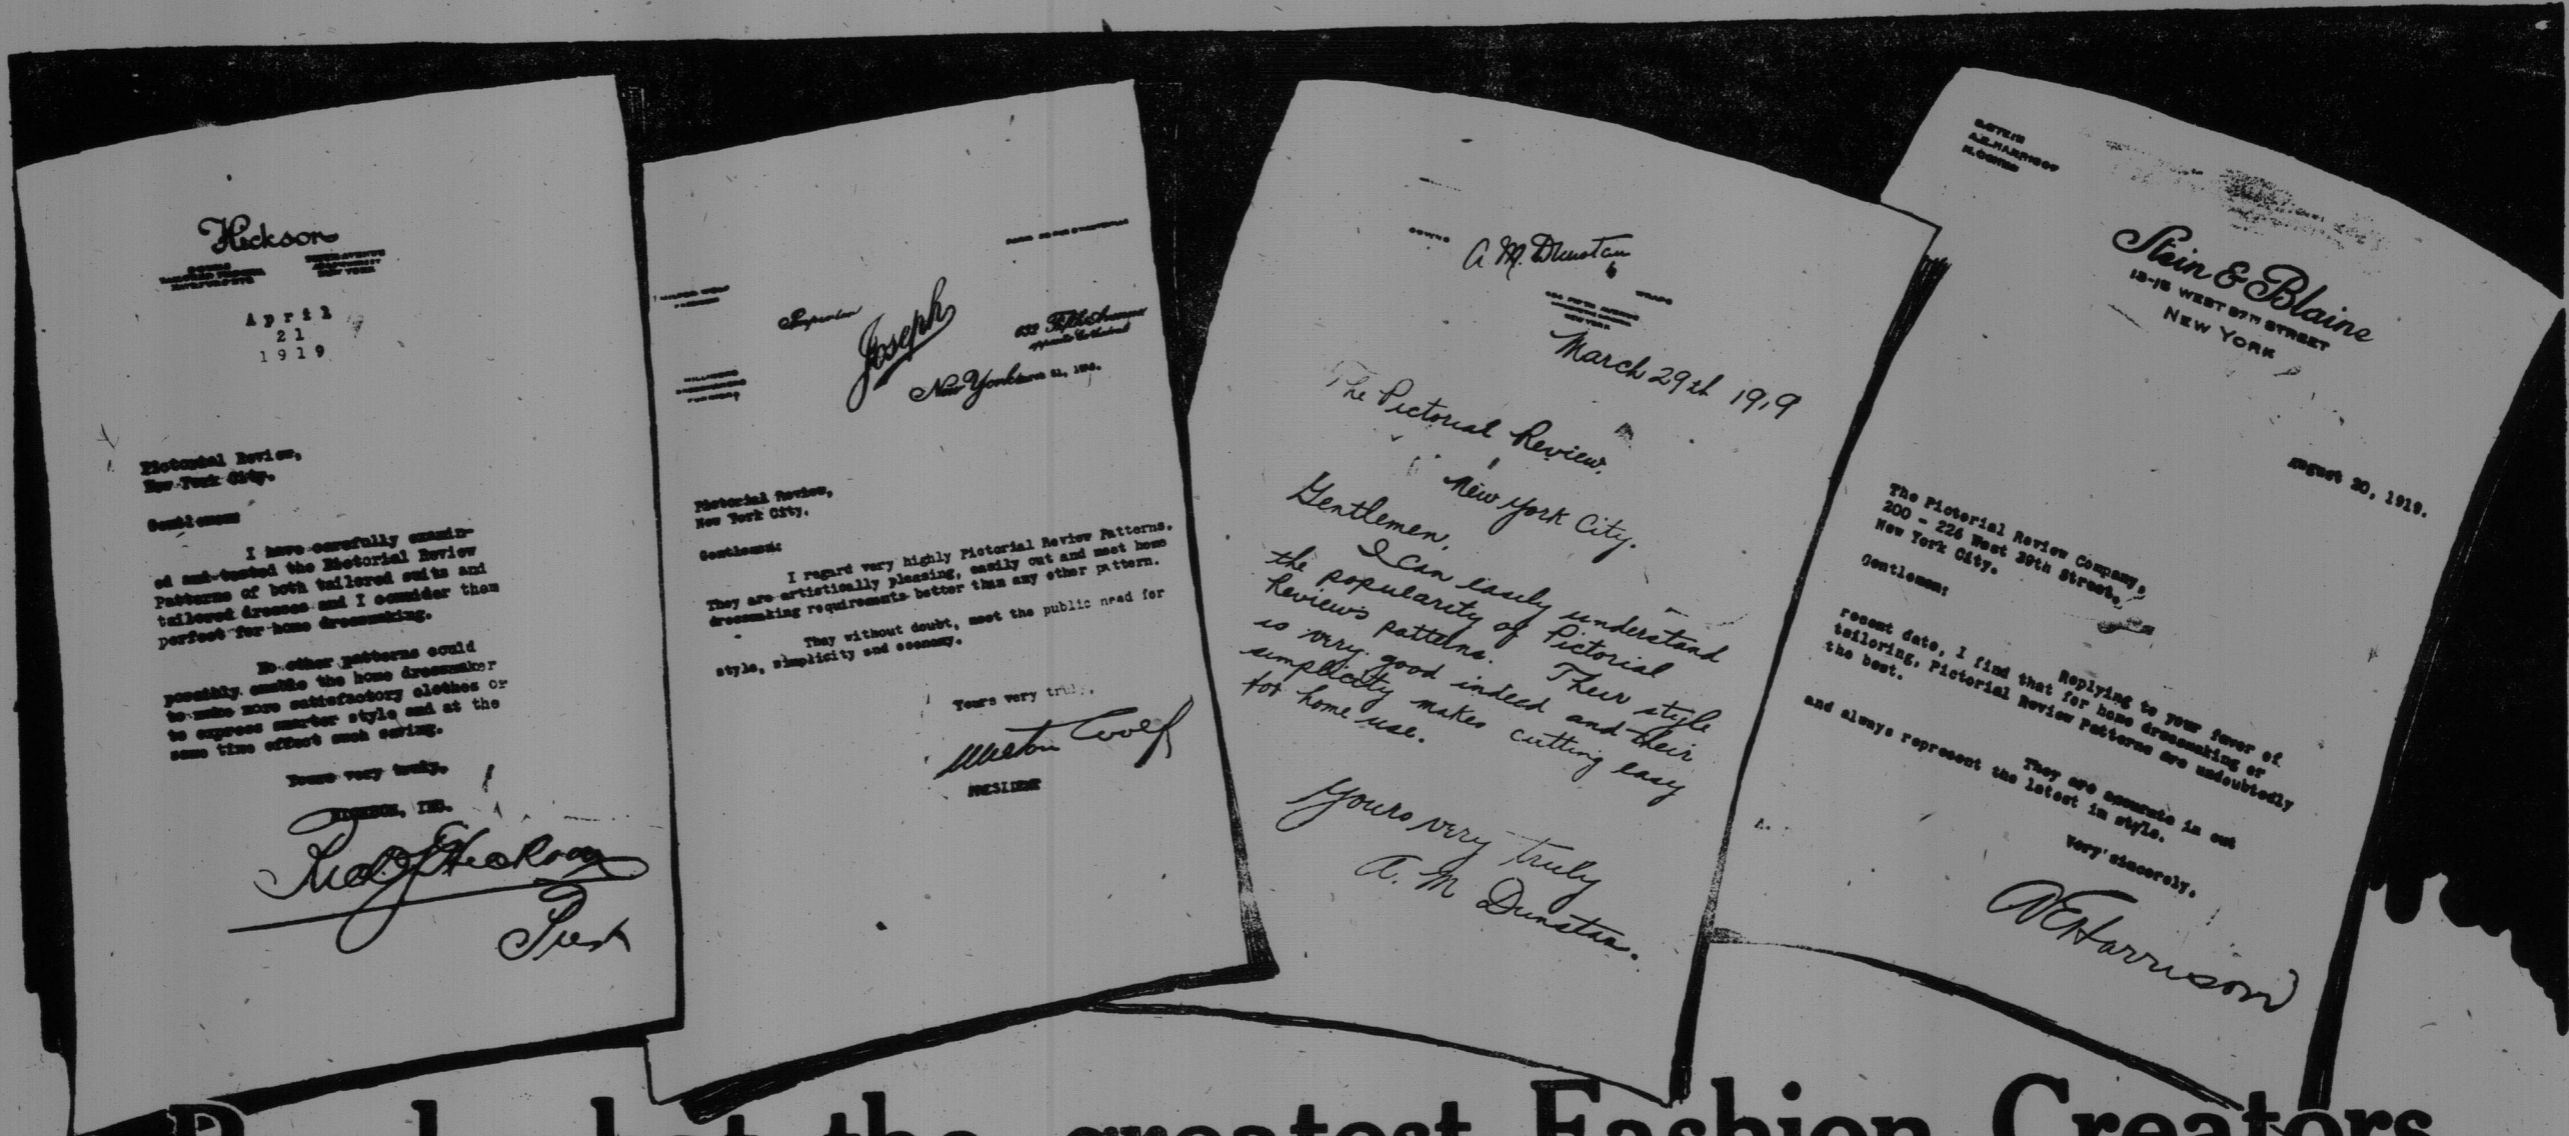 Hickson
NEW YORK
April
21
1919
Pictorial Review,
New York City.
Gentlemen:
I have carefully examin-
ed and tested the Pictorial Review
Patterns of both tailored suits and
tailored dresses and I consider them
perfect for home dressmaking.
No other patterns could
possibly enable the home dressmaker
to make more satisfactory clothes or
to express smarter style and at the
same time effect such saving.
Yours very truly,
HICKSON, INC.
Hickson
Pres
Joseph
632 Fifth Avenue
New York
Pictorial Review,
New York City.
Gentlemen:
I regard very highly Pictorial Review Patterns.
They are artistically pleasing, easily cut and meet home
dressmaking requirements better than any other pattern.
They without doubt, meet the public need for
style, simplicity and economy.
Yours very truly,
PRESIDENT
GOWNS
A. M. Dunstan
WRAPS
FIFTH AVENUE
NEW YORK
March 29th 1919
The Pictorial Review.
New York City.
Gentlemen,
I can easily understand
the popularity of Pictorial
Reviews patterns. Their style
is very good indeed and their
simplicity makes cutting easy
for home use.
Yours very truly
A. M Dunstan.
E. STEIN
A. E. HARRISON
Stein & Blaine
13-15 WEST 57TH STREET
NEW YORK
August 20, 1919.
The Pictorial Review Company,
200 - 226 West 39th Street,
New York City.
Gentlemen:
Replying to your favor of
recent date, I find that for home dressmaking or
tailoring, Pictorial Review Patterns are undoubtedly
the best.
They are accurate in cut
and always represent the latest in style.
Very sincerely,
A E Harrison
the greatest Fashion Creators